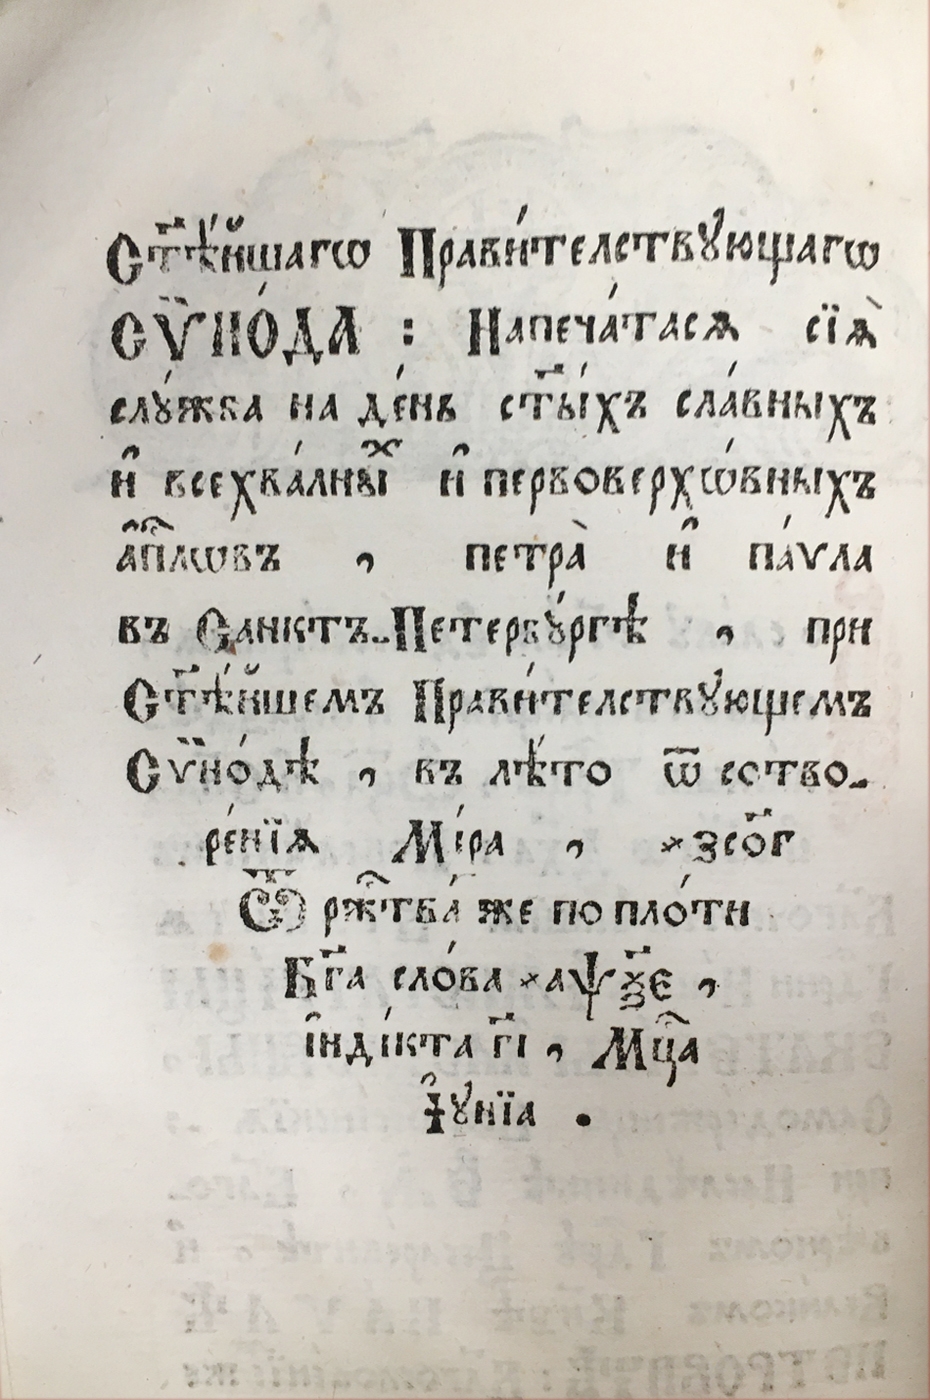 Ст҃ѣ́йшагѡ Прави́телствꙋ́ющагѡ
СѴ̈НО́ДА : Напеча́тасѧ сїѧ̀
слꙋ́жба на де́нь ст҃ы́хъ сла́вныхъ
и҆ всехва́лныⷯ и҆ первоверхѡ́вныхъ
а҆пⷭ҇лѡвъ , петра̀ и҆ па́ѵла
въ Санктъ-Петербꙋ́ргѣ , при
Ст҃ѣ́йшемъ Прави́телствꙋ́ющемъ
Сѵ̈но́дѣ , въ лѣ́то ѿ сотво-
ре́нїѧ Мі́ра , ҂зсо҃г
Ѿ ржⷭ҇тва́ же по пло́ти
Бг҃а сло́ва ҂аѱ҃ѯе ,
і҆нді́кта г҃і , Мцⷭ҇а
І҆ꙋ́нїа .